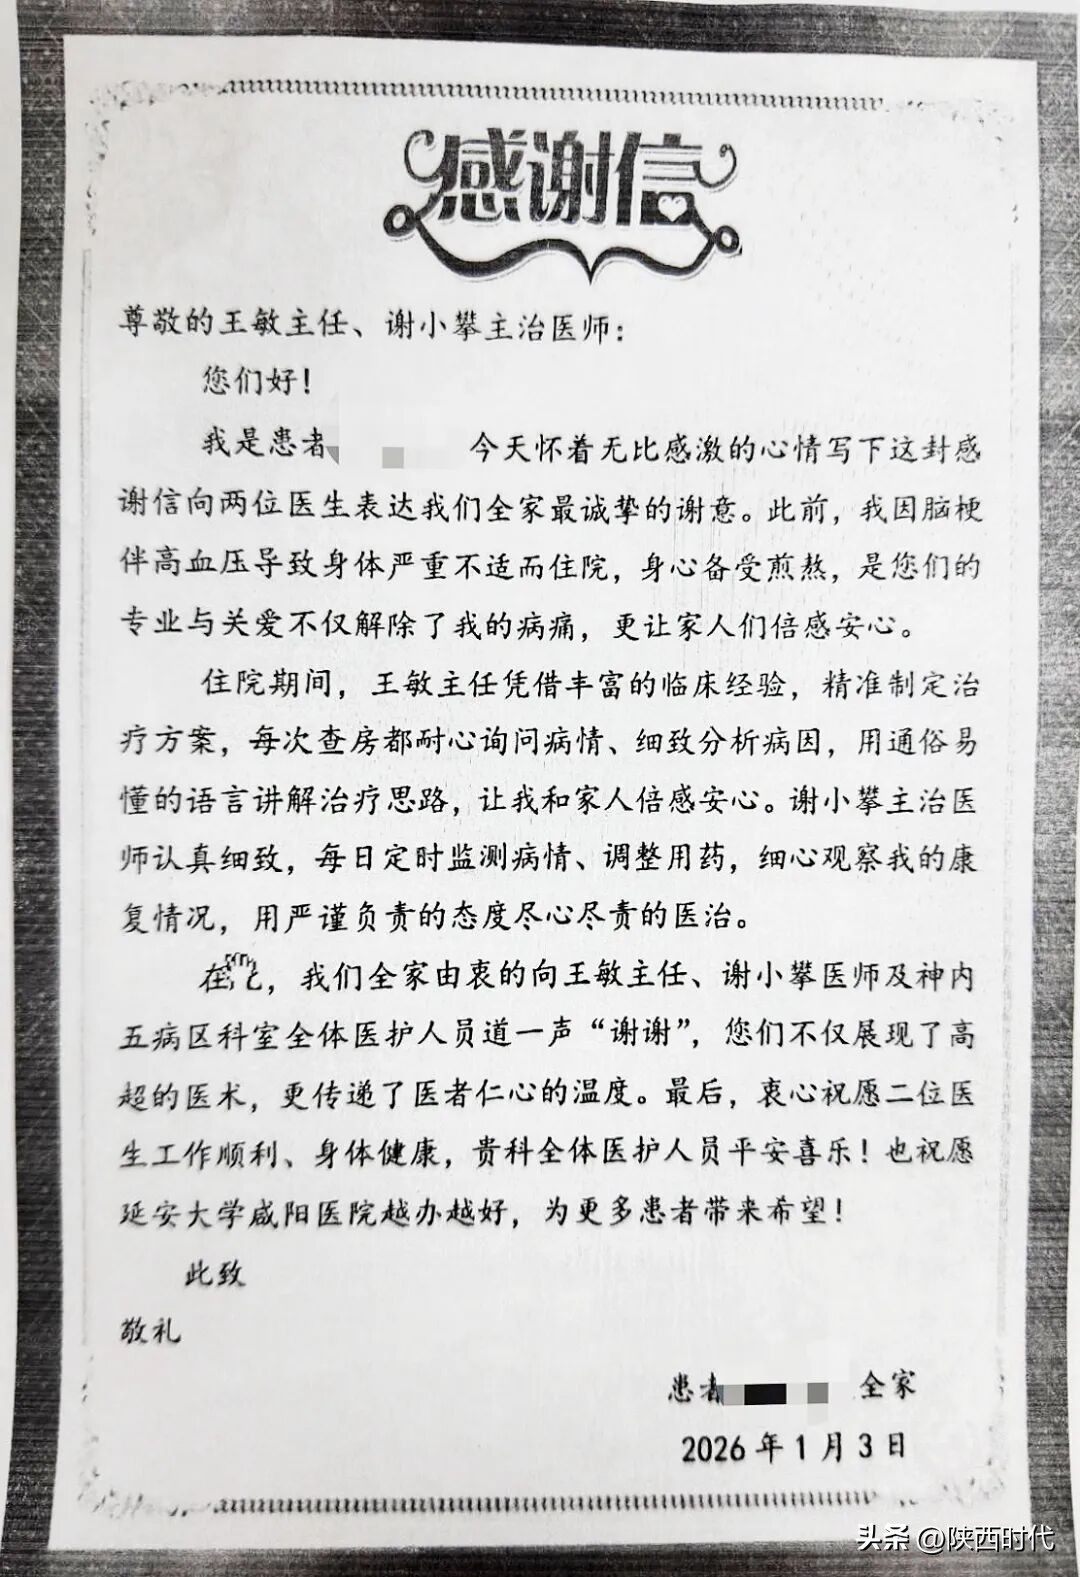 感谢信
尊敬的王敏主任、谢小攀主治医师：
您们好！
我是患者 今天怀着无比感激的心情写下这封感
谢信向两位医生表达我们全家最诚挚的谢意。此前，我因脑梗
伴高血压导致身体严重不适而住院，身心备受煎熬，是您们的
专业与关爱不仅解除了我的病痛，更让家人们倍感安心。
住院期间，王敏主任凭借丰富的临床经验，精准制定治
疗方案，每次查房都耐心询问病情、细致分析病因，用通俗易
懂的语言讲解治疗思路，让我和家人倍感安心。谢小攀主治医
师认真细致，每日定时监测病情、调整用药，细心观察我的康
复情况，用严谨负责的态度尽心尽责的医治。
在，我们全家由衷的向王敏主任、谢小攀医师及神内
五病区科室全体医护人员道一声“谢谢”，您们不仅展现了高
超的医术，更传递了医者仁心的温度。最后，衷心祝愿二位医
生工作顺利、身体健康，贵科全体医护人员平安喜乐！也祝愿
延安大学咸阳医院越办越好，为更多患者带来希望！
此致
敬礼
患者 全家
2026年1月3日
头条 @陕西时代